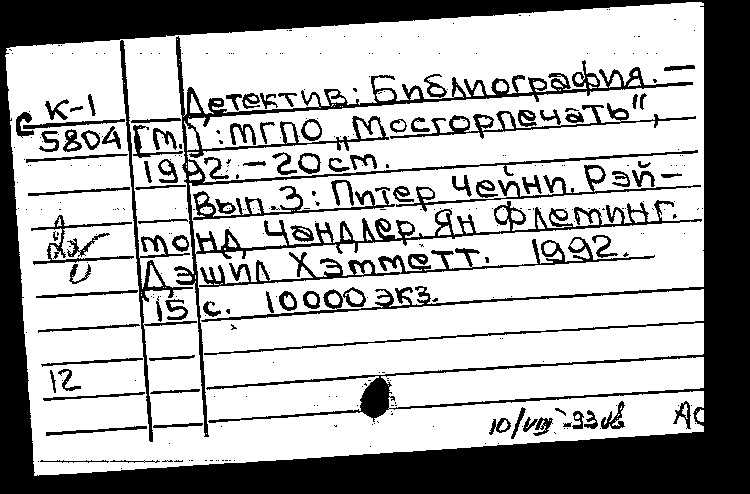 Детектив: Библиография. —
К-1
5804 [М.]: МГПО „Мосгорпечать",
1992. – 20 см.
Вып. 3: Питер Чейни. Рэй-
монд Чандлер. Ян Флеминг.
Дэшил Хэмметт. 1992.
15 с. 10000 экз.
12
10/VIII-93